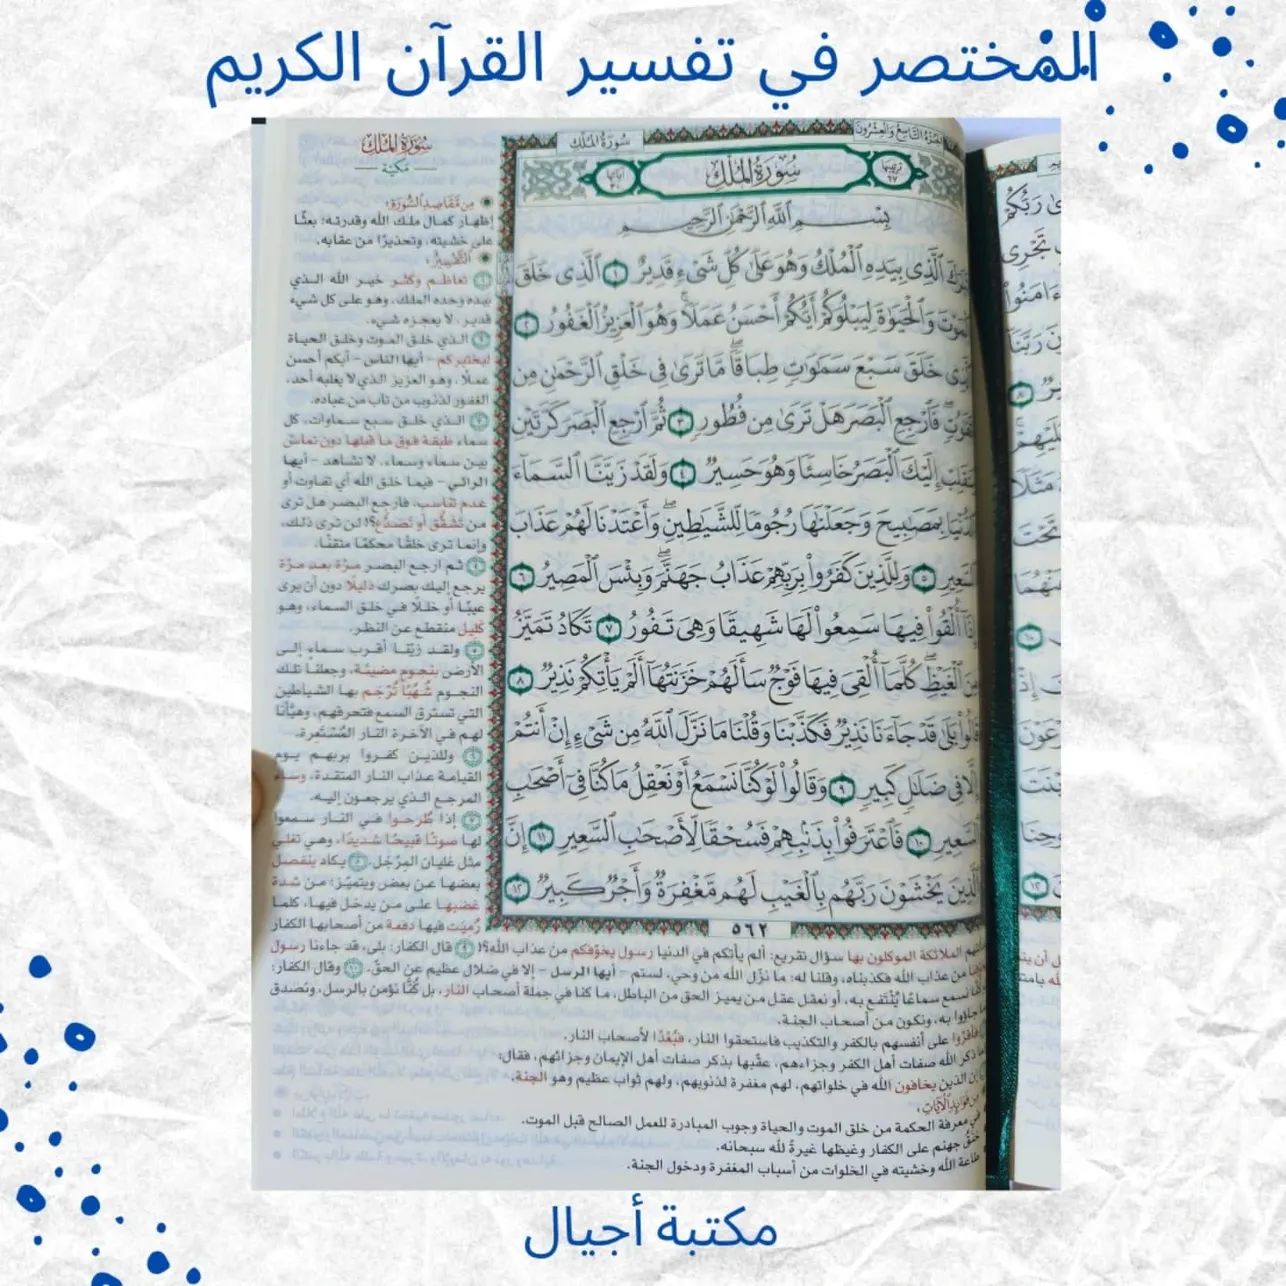 المُختصر في تفسير القرآن الكريم
سُورَةُ المُلْكِ
الجُزْءُ التَّاسِعُ وَالعِشْرُونَ
سُورَةُ المُلْكِ
مَكيّة
ترتيبها ٦٧
سُورَةُ المُلْكِ
آياتها ٣٠
بِسْمِ ٱللَّهِ ٱلرَّحْمَٰنِ ٱلرَّحِيمِ
ٱلَّذِى بِيَدِهِ ٱلْمُلْكُ وَهُوَ عَلَىٰ كُلِّ شَىْءٍ قَدِيرٌ ١ ٱلَّذِى خَلَقَ
ٱلْمَوْتَ وَٱلْحَيَوٰةَ لِيَبْلُوَكُمْ أَيُّكُمْ أَحْسَنُ عَمَلًا ۚ وَهُوَ ٱلْعَزِيزُ ٱلْغَفُورُ ٢
ٱلَّذِى خَلَقَ سَبْعَ سَمَٰوَٰتٍ طِبَاقًا ۖ مَّا تَرَىٰ فِى خَلْقِ ٱلرَّحْمَٰنِ مِن
تَفَٰوُتٍ ۖ فَٱرْجِعِ ٱلْبَصَرَ هَلْ تَرَىٰ مِن فُطُورٍ ٣ ثُمَّ ٱرْجِعِ ٱلْبَصَرَ كَرَّتَيْنِ
يَنقَلِبْ إِلَيْكَ ٱلْبَصَرُ خَاسِئًا وَهُوَ حَسِيرٌ ٤ وَلَقَدْ زَيَّنَّا ٱلسَّمَآءَ
ٱلدُّنْيَا بِمَصَٰبِيحَ وَجَعَلْنَٰهَا رُجُومًا لِّلشَّيَٰطِينِ ۖ وَأَعْتَدْنَا لَهُمْ عَذَابَ
ٱلسَّعِيرِ ٥ وَلِلَّذِينَ كَفَرُوا۟ بِرَبِّهِمْ عَذَابُ جَهَنَّمَ ۖ وَبِئْسَ ٱلْمَصِيرُ ٦
إِذَآ أُلْقُوا۟ فِيهَا سَمِعُوا۟ لَهَا شَهِيقًا وَهِىَ تَفُورُ ٧ تَكَادُ تَمَيَّزُ
مِنَ ٱلْغَيْظِ ۖ كُلَّمَآ أُلْقِىَ فِيهَا فَوْجٌ سَأَلَهُمْ خَزَنَتُهَآ أَلَمْ يَأْتِكُمْ نَذِيرٌ ٨
قَالُوا۟ بَلَىٰ قَدْ جَآءَنَا نَذِيرٌ فَكَذَّبْنَا وَقُلْنَا مَا نَزَّلَ ٱللَّهُ مِن شَىْءٍ إِنْ أَنتُمْ
إِلَّا فِى ضَلَٰلٍ كَبِيرٍ ٩ وَقَالُوا۟ لَوْ كُنَّا نَسْمَعُ أَوْ نَعْقِلُ مَا كُنَّا فِىٓ أَصْحَٰبِ
ٱلسَّعِيرِ ١٠ فَٱعْتَرَفُوا۟ بِذَنۢبِهِمْ فَسُحْقًا لِّأَصْحَٰبِ ٱلسَّعِيرِ ١١ إِنَّ
ٱلَّذِينَ يَخْشَوْنَ رَبَّهُم بِٱلْغَيْبِ لَهُم مَّغْفِرَةٌ وَأَجْرٌ كَبِيرٌ ١٢
٥٦٢
مِن مَّقَاصِدِ السُّورَةِ:
إظهار كمال ملك الله وقدرته؛ بعثًا
على خشيته، وتحذيرًا من عقابه.
التَّفْسِيرُ:
١ تعاظم وكثر خير الله الذي
بيده وحده الملك، وهو على كل شيء
قدير، لا يعجزه شيء.
٢ الذي خلق الموت وخلق الحياة
ليختبركم – أيها الناس – أيكم أحسن
عملًا، وهو العزيز الذي لا يغلبه أحد،
الغفور لذنوب من تاب من عباده.
٣ الذي خلق سبع سماوات، كل
سماء طبقة فوق ما قبلها دون تماسّ
بين سماء وسماء، لا تشاهد – أيها
الرائي – فيما خلق الله أي تفاوت أو
عدم تناسب، فارجع البصر هل ترى
من تشقّق أو تصدّع؟! لن ترى ذلك،
وإنما ترى خلقًا محكمًا متقنًا.
٤ ثم ارجع البصر مرّة بعد مرّة
يرجع إليك بصرك ذليلًا دون أن يرى
عيبًا أو خللًا في خلق السماء، وهو
كليل منقطع عن النظر.
٥ ولقد زيّنا أقرب سماء إلى
الأرض بنجوم مضيئة، وجعلنا تلك
النجوم شُهُبًا تُرْجَم بها الشياطين
التي تسترق السمع فتحرقهم، وهيّأنا
لهم في الآخرة النار المُسْتَعِرة.
٦ وللذين كفروا بربهم يوم
القيامة عذاب النار المتقدة، وساء
المرجع الذي يرجعون إليه.
٧ إذا طُرحوا في النار سمعوا
لها صوتًا قبيحًا شديدًا، وهي تغلي
مثل غليان المِرْجَل. ٨ يكاد ينفصل
بعضها عن بعض ويتميّز؛ من شدة
غضبها على من يدخل فيها، كلما
رُمِيَت فيها دفعة من أصحابها الكفار
سألتهم الملائكة الموكلون بها سؤال تقريع: ألم يأتكم في الدنيا رسول يخوّفكم من عذاب الله؟! ٩ قال الكفار: بلى، قد جاءنا رسول
من عذاب الله فكذبناه، وقلنا له: ما نزّل الله من وحي، لستم – أيها الرسل – إلا في ضلال عظيم عن الحق. ١٠ وقال الكفار:
كنا نسمع سماعًا يُنْتَفع به، أو نعقل عقل من يميز الحق من الباطل، ما كنا في جملة أصحاب النار، بل كُنَّا نؤمن بالرسل، ونصدق
جاؤوا به، ونكون من أصحاب الجنة.
على أنفسهم بالكفر والتكذيب فاستحقوا النار، فبُعْدًا لأصحاب النار.
ذكر الله صفات أهل الكفر وجزاءهم، عقّبها بذكر صفات أهل الإيمان وجزائهم، فقال:
الذين يخافون الله في خلواتهم، لهم مغفرة لذنوبهم، ولهم ثواب عظيم وهو الجنة.
مِن فَوَائِدِ الآيَاتِ:
في معرفة الحكمة من خلق الموت والحياة وجوب المبادرة للعمل الصالح قبل الموت.
حَنَقُ جهنم على الكفار وغيظها غيرةً لله سبحانه.
طاعة الله وخشيته في الخلوات من أسباب المغفرة ودخول الجنة.
مكتبة أجيال